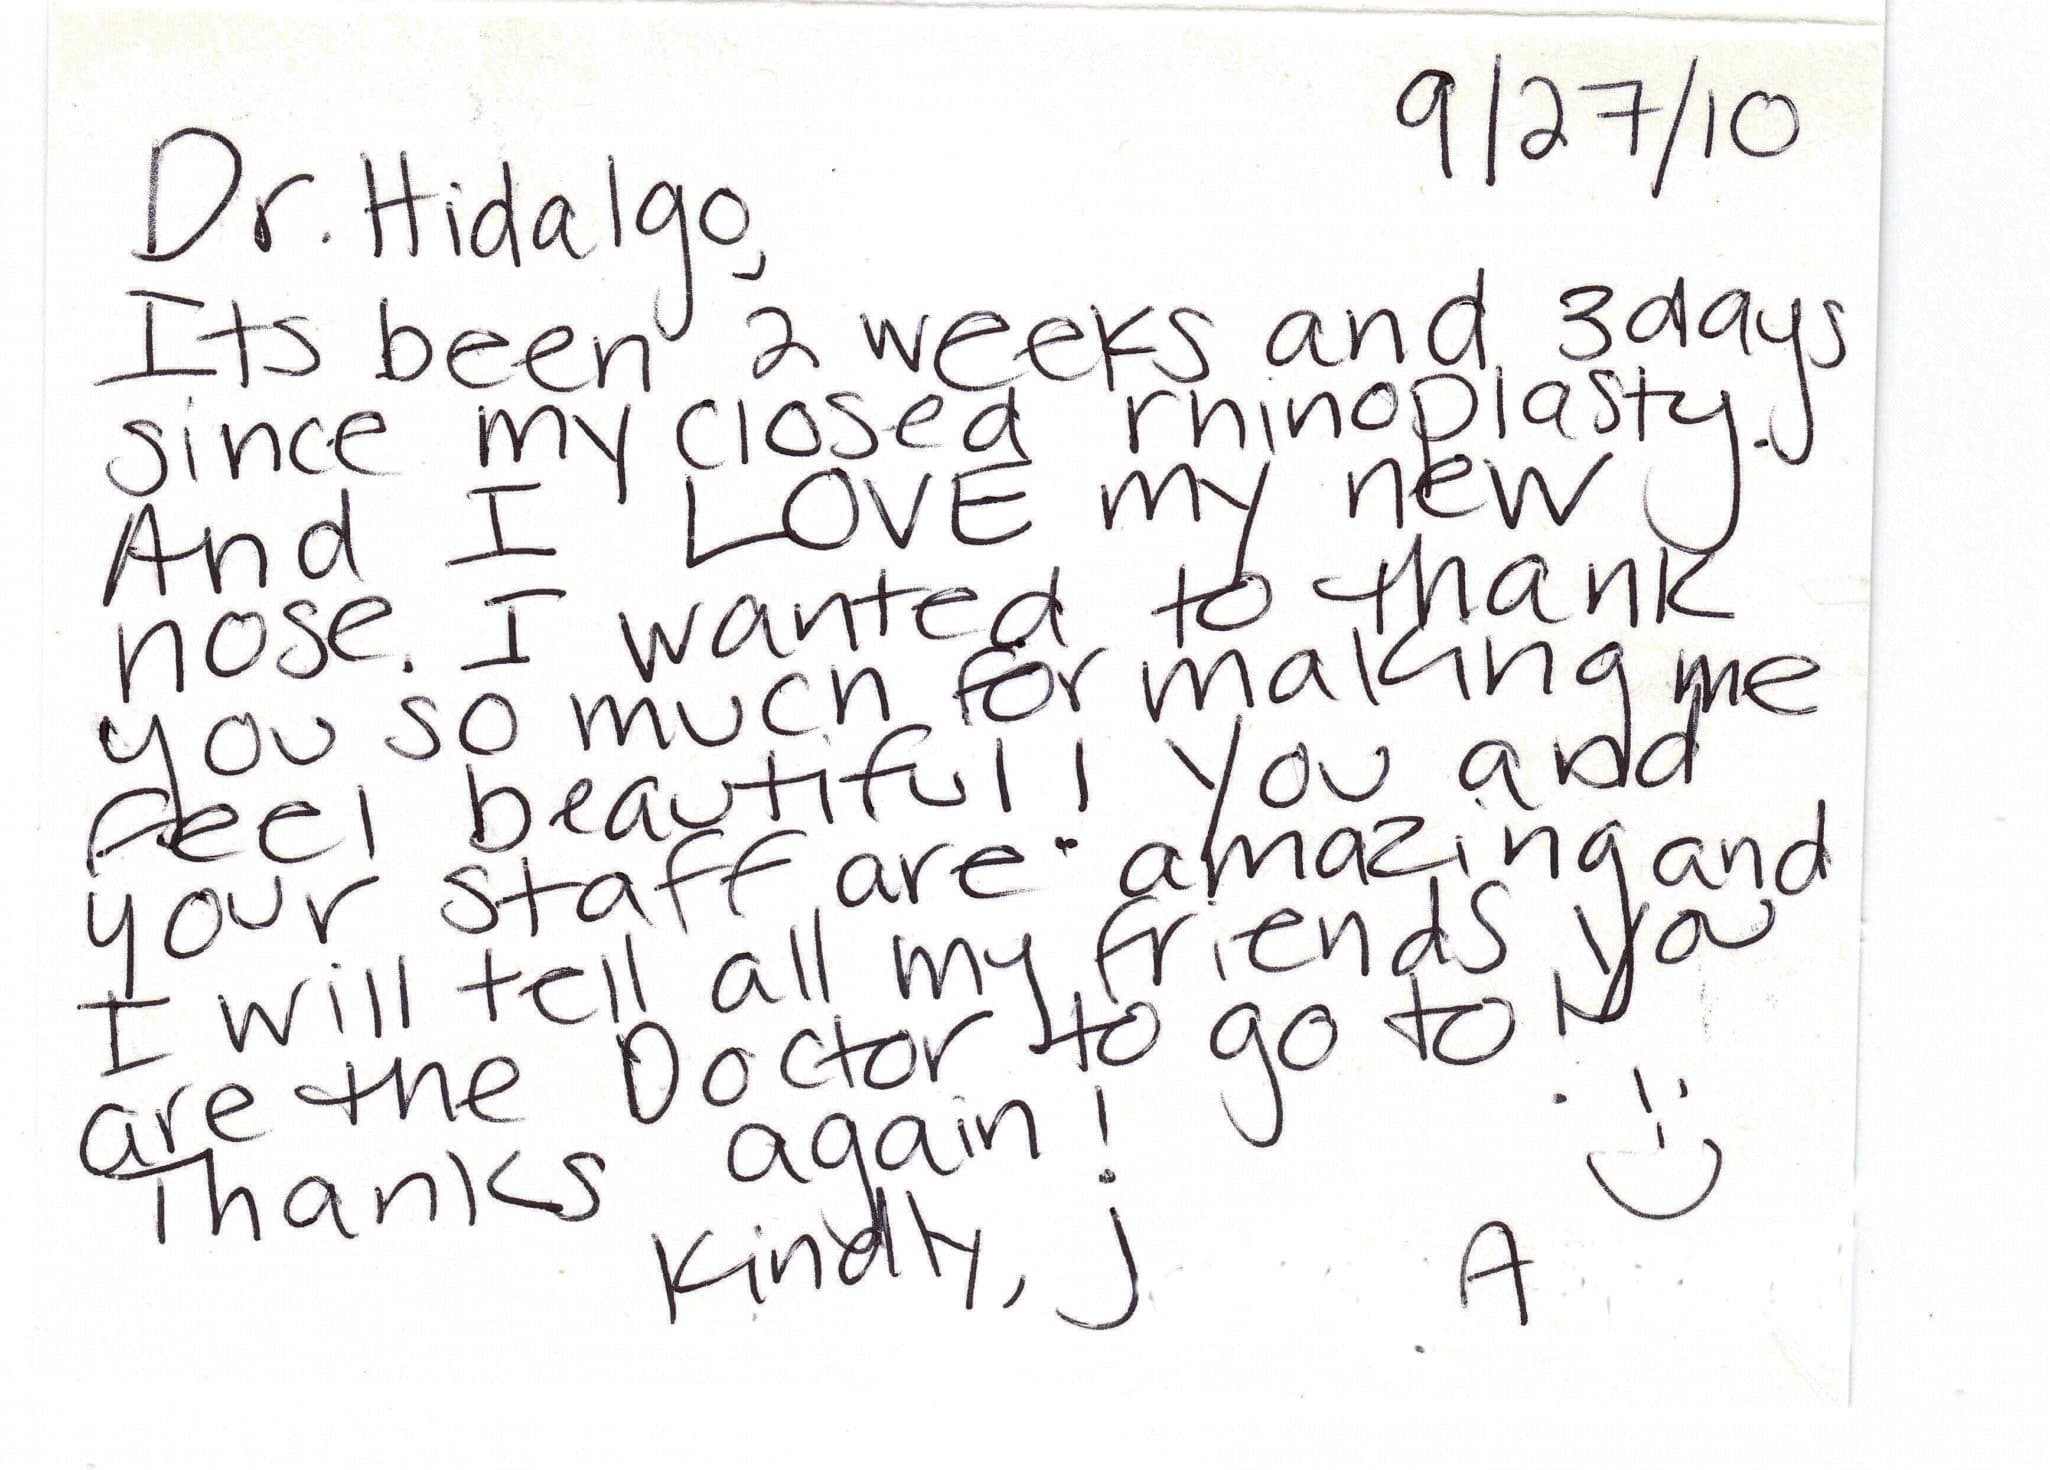 9/27/10
Dr. Hidalgo,
Its been 2 weeks and 3days
since my closed rhinoplasty.
And I LOVE my new
nose. I wanted to thank
you so much for making me
feel beautiful! You and
your staff are amazing and
I will tell all my friends you
are the Doctor to go to!
Thanks again!
Kindly, J A